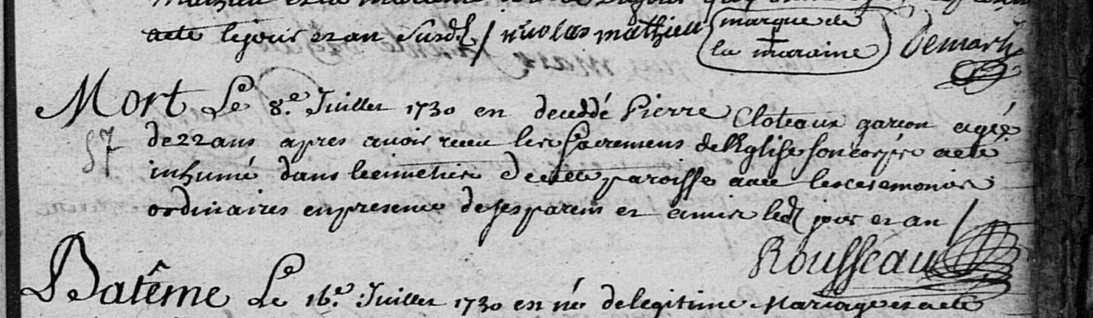 acte le jour et an Susd. / nicolas mathieu marque de la + maraine Demars
Mort Le 8.e Juillet 1730 en decedé Pierre Cloteaux garcon agée
57 de 22 ans apres avoir receu les Sacremens de l'Eglise son corps a eté
inhumé dans le cimetiere de cette paroisse avec les ceremonies
ordinaires en presence de ses parens et amis led. jour et an /
Rousseau
Batême Le 16.e Juillet 1730 en né de legitime Mariage et a eté